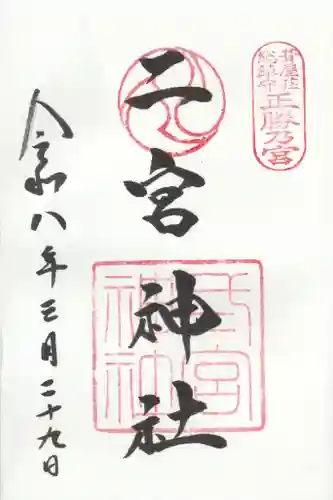 葺屋荘
総鎮守
正勝乃宮
二宮神社
二宮神社
令和八年三月二十九日